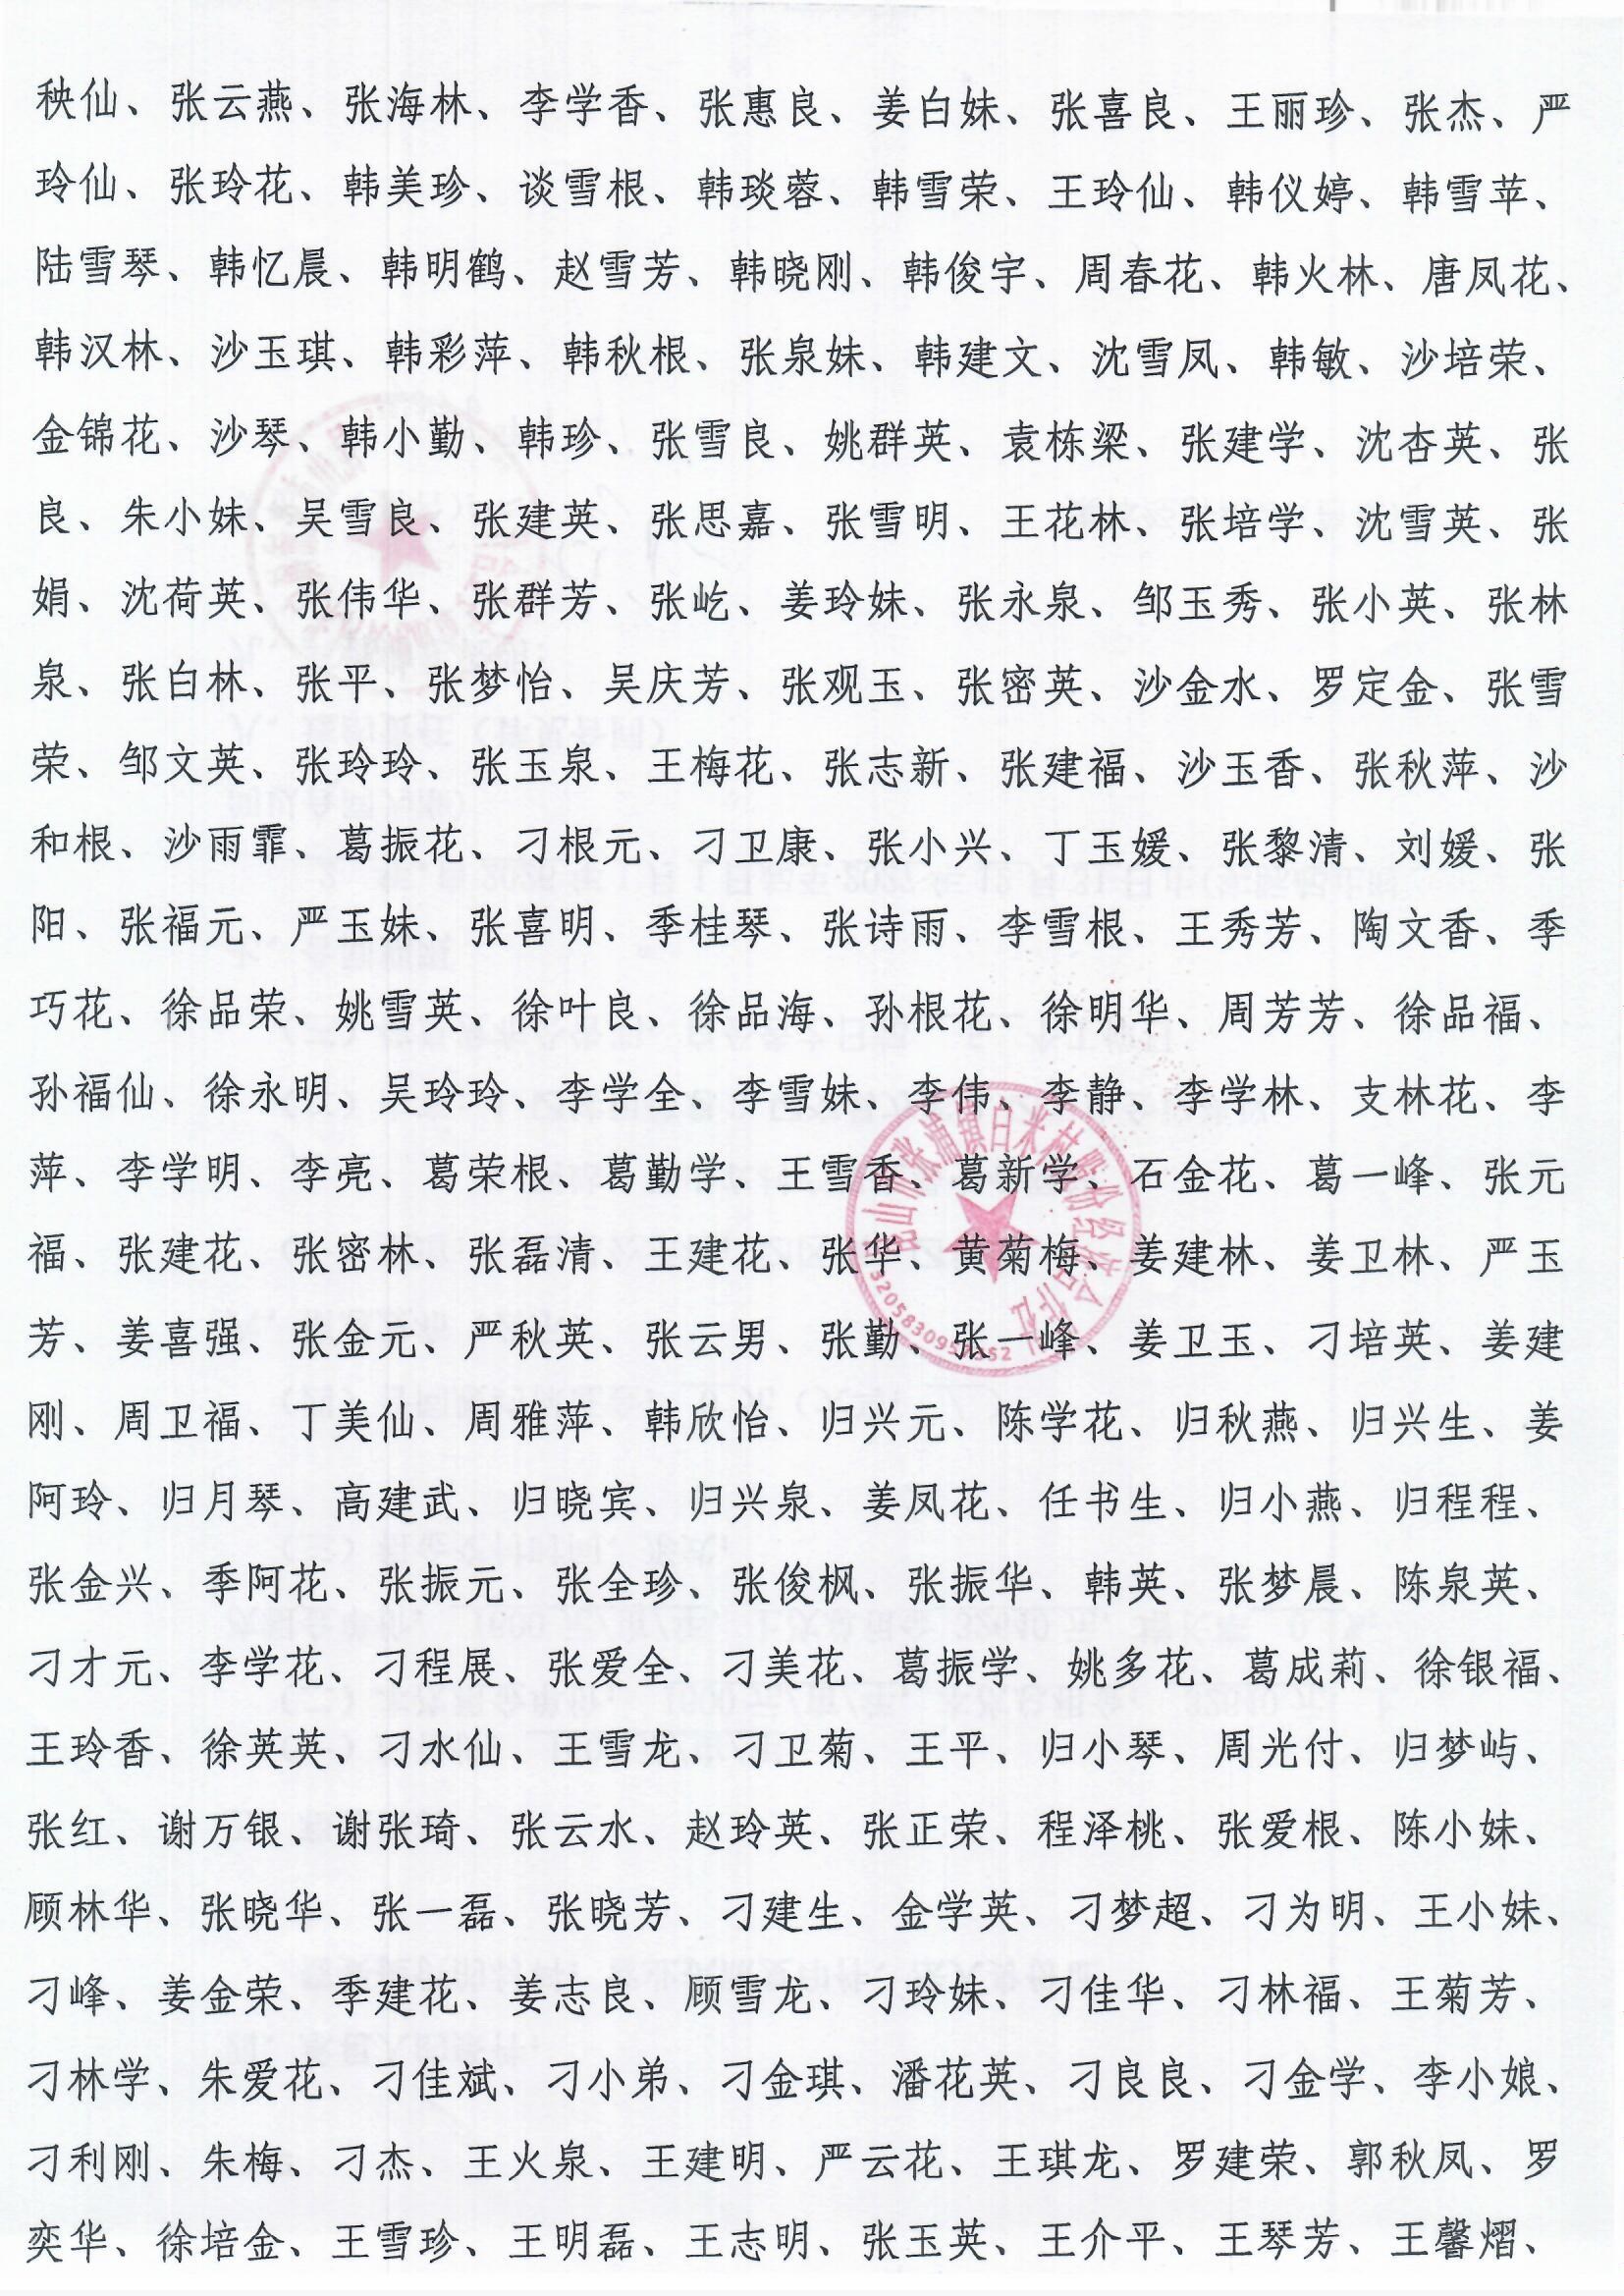 秧仙、张云燕、张海林、李学香、张惠良、姜白妹、张喜良、王丽珍、张杰、严
玲仙、张玲花、韩美珍、谈雪根、韩琰蓉、韩雪荣、王玲仙、韩仪婷、韩雪苹、
陆雪琴、韩忆晨、韩明鹤、赵雪芳、韩晓刚、韩俊宇、周春花、韩火林、唐凤花、
韩汉林、沙玉琪、韩彩萍、韩秋根、张泉妹、韩建文、沈雪凤、韩敏、沙培荣、
金锦花、沙琴、韩小勤、韩珍、张雪良、姚群英、袁栋梁、张建学、沈杏英、张
良、朱小妹、吴雪良、张建英、张思嘉、张雪明、王花林、张培学、沈雪英、张
娟、沈荷英、张伟华、张群芳、张屹、姜玲妹、张永泉、邹玉秀、张小英、张林
泉、张白林、张平、张梦怡、吴庆芳、张观玉、张密英、沙金水、罗定金、张雪
荣、邹文英、张玲玲、张玉泉、王梅花、张志新、张建福、沙玉香、张秋萍、沙
和根、沙雨霏、葛振花、刁根元、刁卫康、张小兴、丁玉媛、张黎清、刘媛、张
阳、张福元、严玉妹、张喜明、季桂琴、张诗雨、李雪根、王秀芳、陶文香、季
巧花、徐品荣、姚雪英、徐叶良、徐品海、孙根花、徐明华、周芳芳、徐品福、
孙福仙、徐永明、吴玲玲、李学全、李雪妹、李伟、李静、李学林、支林花、李
萍、李学明、李亮、葛荣根、葛勤学、王雪香、葛新学、石金花、葛一峰、张元
福、张建花、张密林、张磊清、王建花、张华、黄菊梅、姜建林、姜卫林、严玉
芳、姜喜强、张金元、严秋英、张云男、张勤、张一峰、姜卫玉、刁培英、姜建
刚、周卫福、丁美仙、周雅萍、韩欣怡、归兴元、陈学花、归秋燕、归兴生、姜
阿玲、归月琴、高建武、归晓宾、归兴泉、姜凤花、任书生、归小燕、归程程、
张金兴、季阿花、张振元、张全珍、张俊枫、张振华、韩英、张梦晨、陈泉英、
刁才元、李学花、刁程展、张爱全、刁美花、葛振学、姚多花、葛成莉、徐银福、
王玲香、徐英英、刁水仙、王雪龙、刁卫菊、王平、归小琴、周光付、归梦屿、
张红、谢万银、谢张琦、张云水、赵玲英、张正荣、程泽桃、张爱根、陈小妹、
顾林华、张晓华、张一磊、张晓芳、刁建生、金学英、刁梦超、刁为明、王小妹、
刁峰、姜金荣、季建花、姜志良、顾雪龙、刁玲妹、刁佳华、刁林福、王菊芳、
刁林学、朱爱花、刁佳斌、刁小弟、刁金琪、潘花英、刁良良、刁金学、李小娘、
刁利刚、朱梅、刁杰、王火泉、王建明、严云花、王琪龙、罗建荣、郭秋凤、罗
奕华、徐培金、王雪珍、王明磊、王志明、张玉英、王介平、王琴芳、王馨熠、